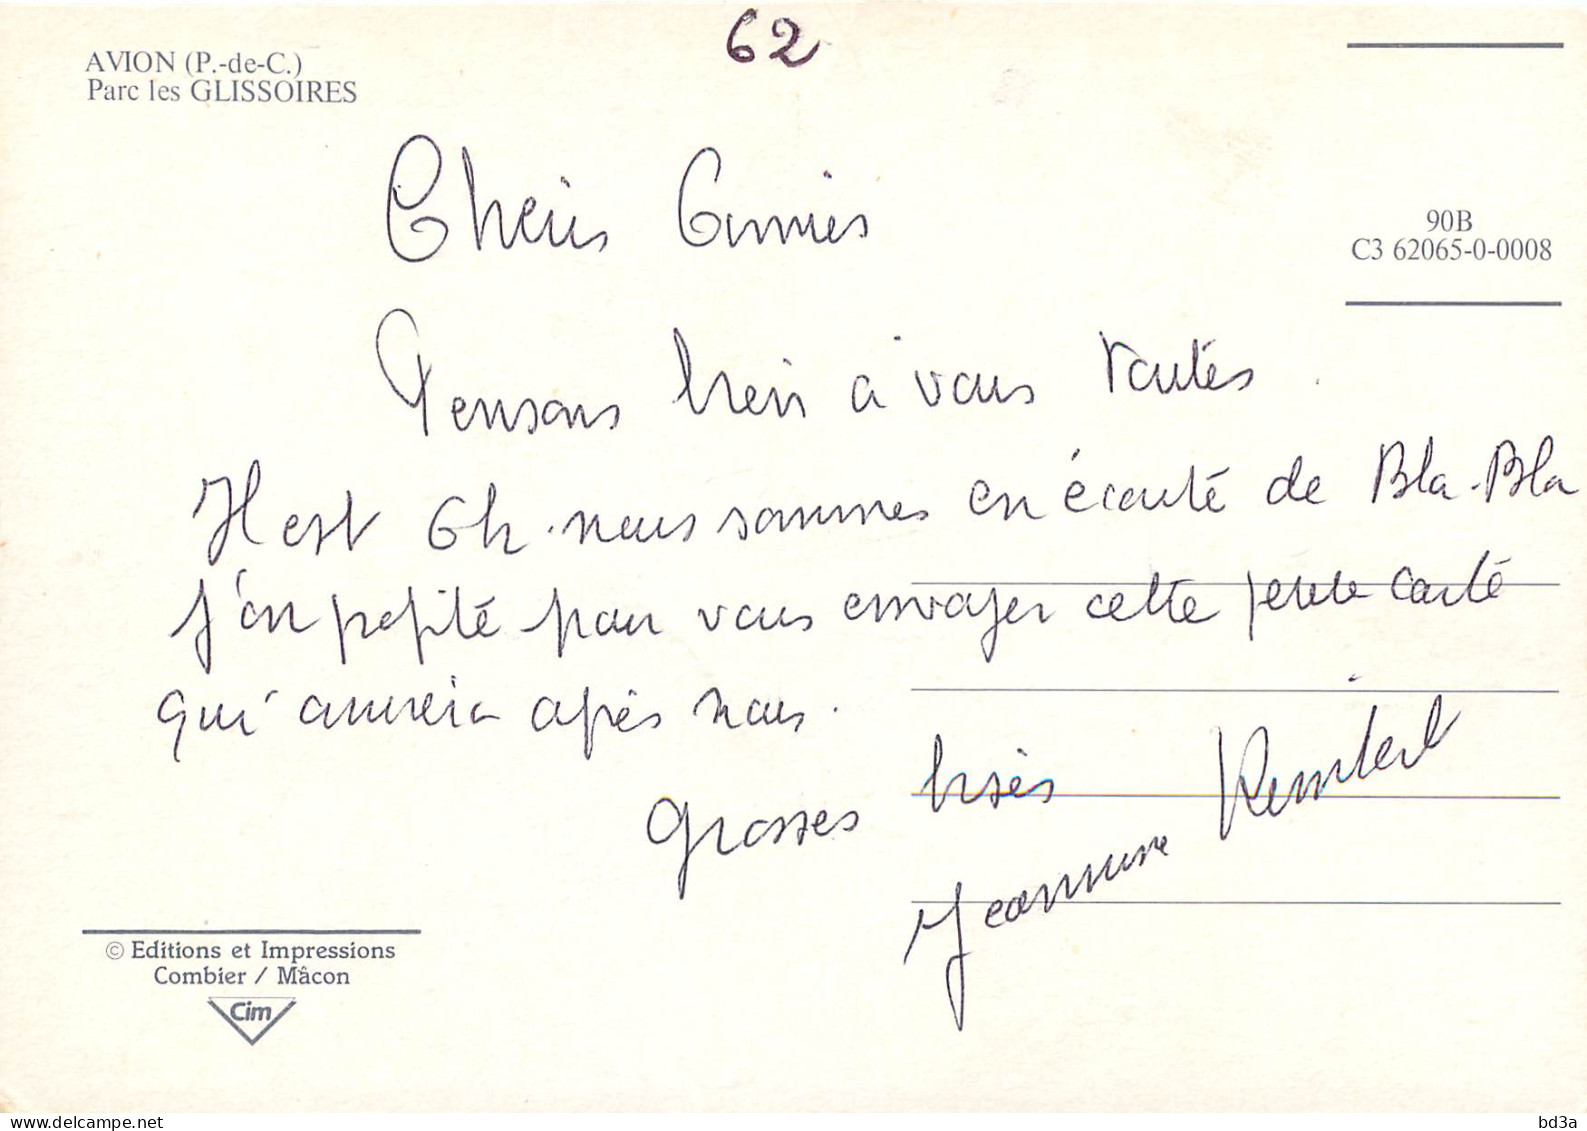 62
AVION (P.-de-C.)
Parc les GLISSOIRES
90B
C3 62065-0-0008
Cheris Amies
Pensons bien à vous toutes.
Il est 6h. nous sommes en écoute de Bla-Bla
J'en profite pour vous envoyer cette petite carte
qui arrivera après nous.
Grosses bises
Jeannine Rembert
© Editions et Impressions
Combier / Mâcon
Cim
www.delcampe.net
bd3a